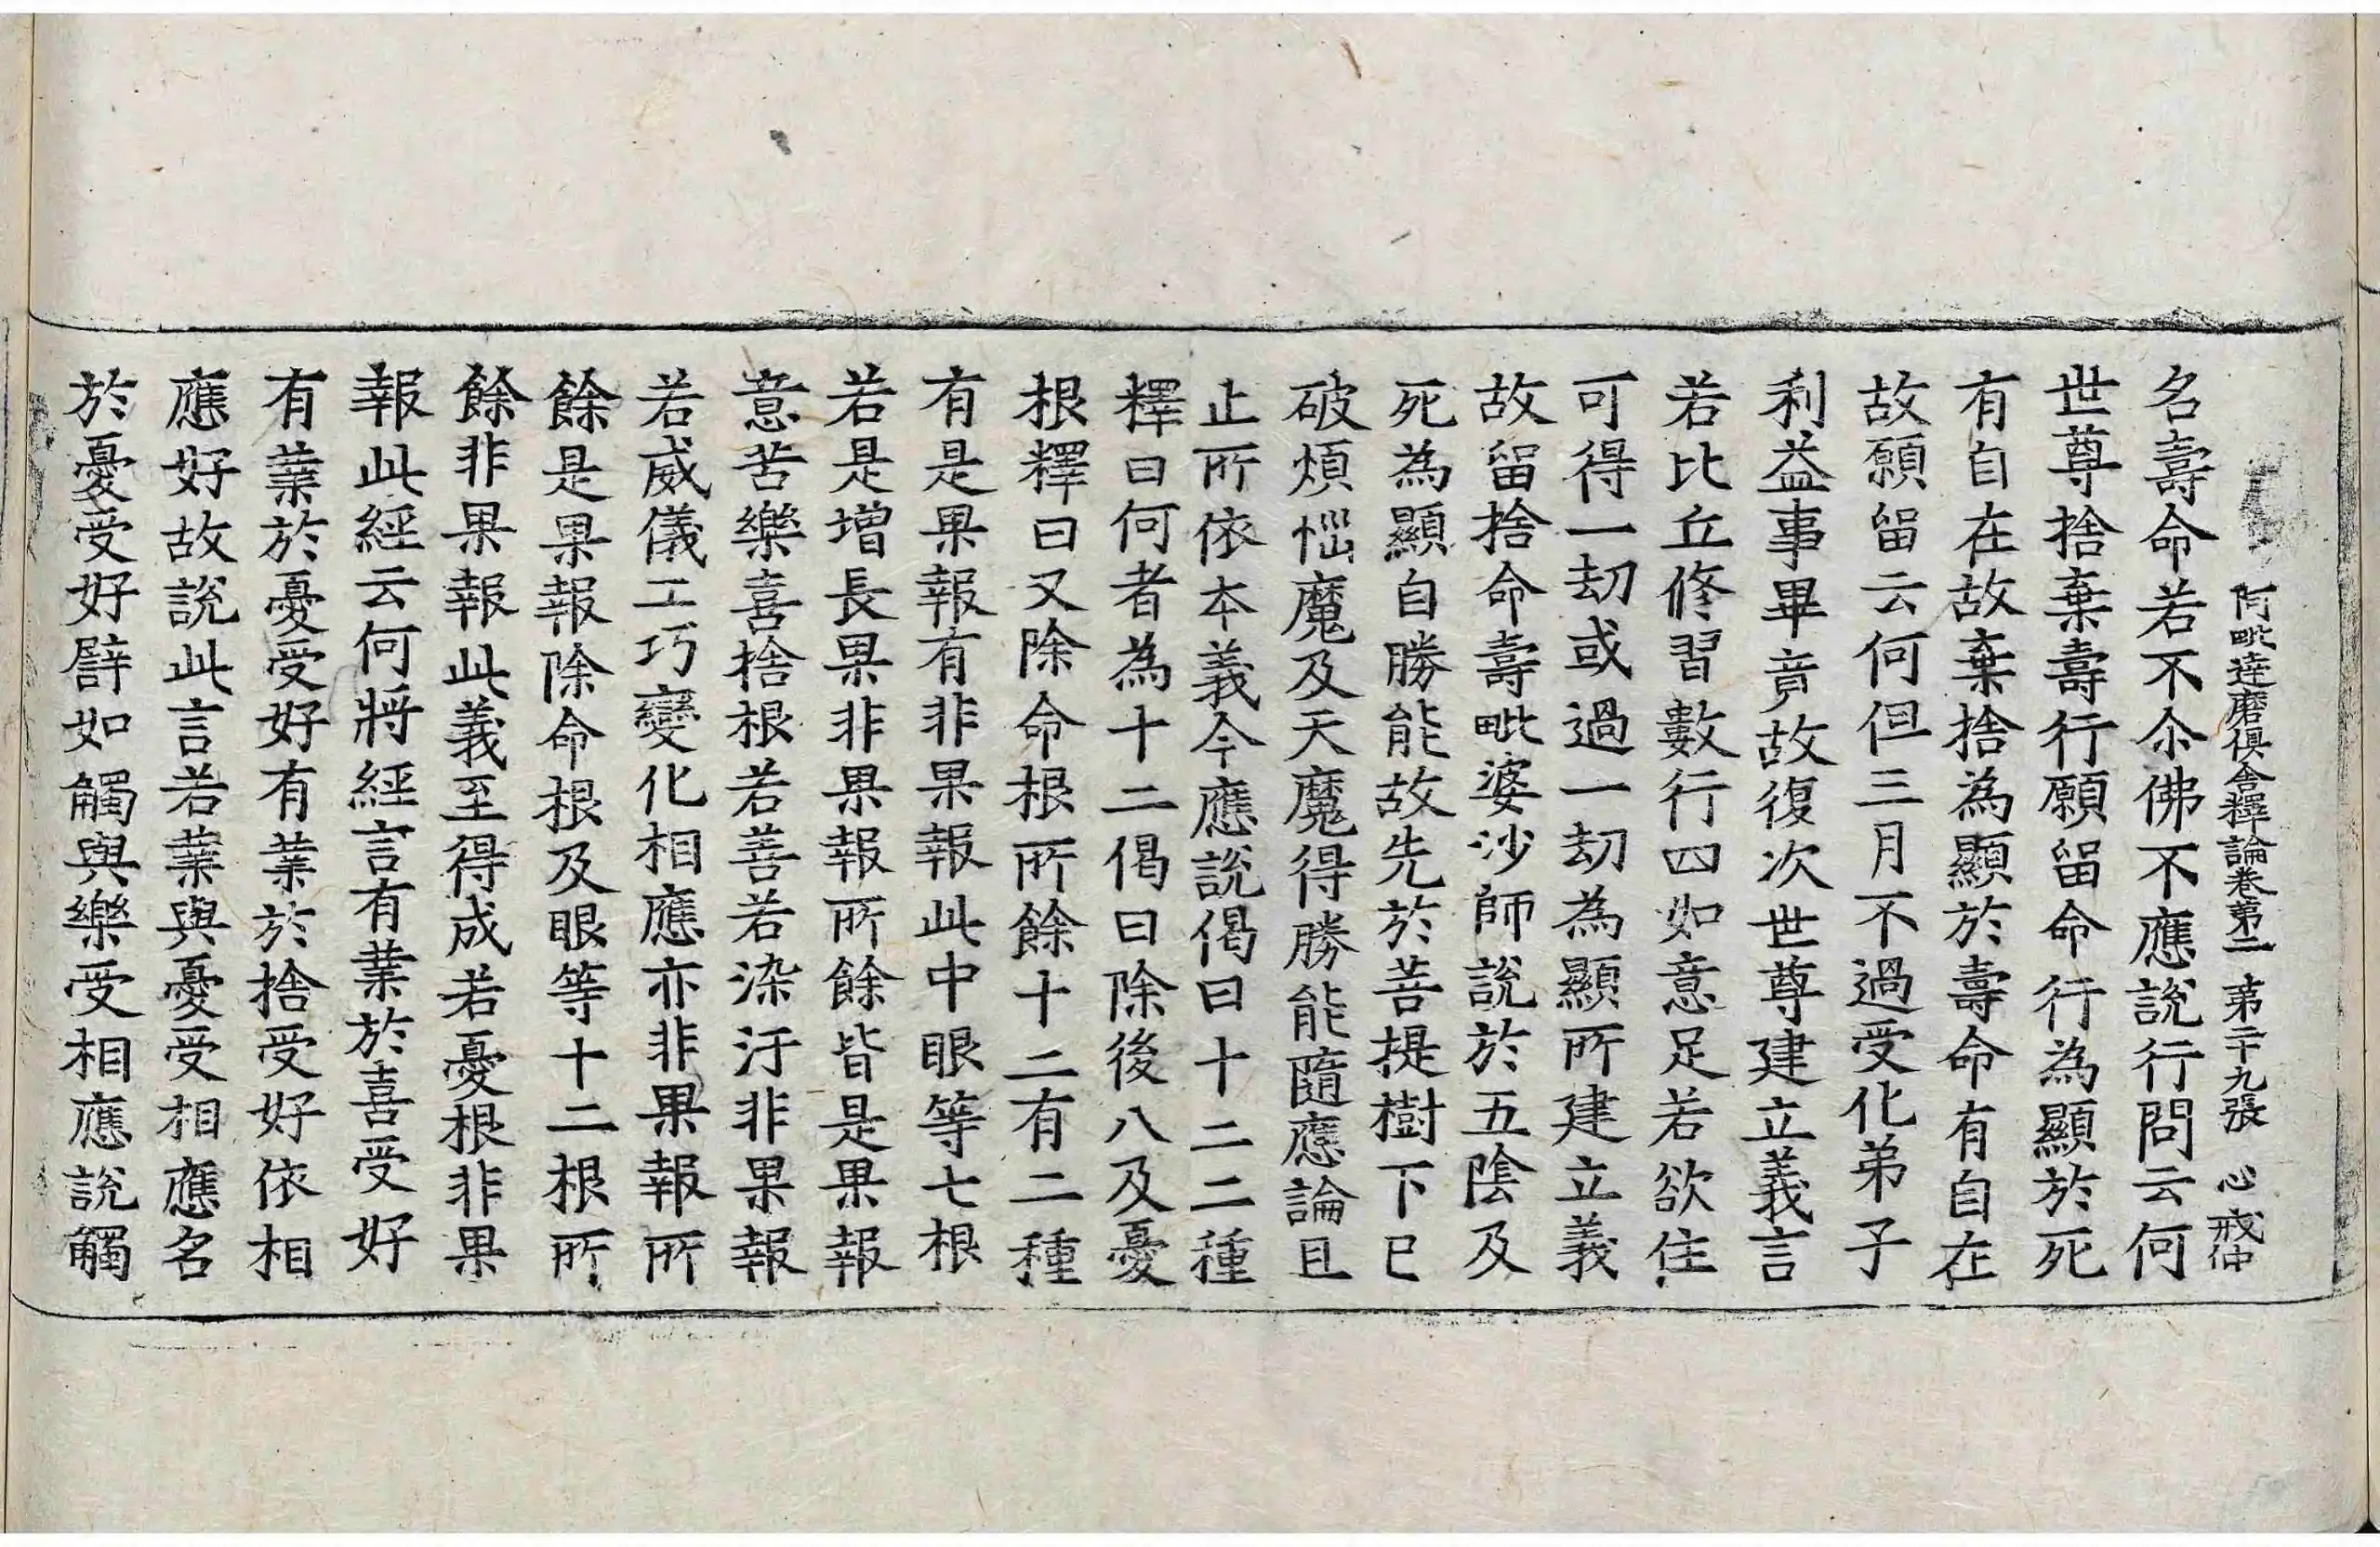 阿毗達磨俱舍釋論卷第二 第二十九張 心 戒仲
名壽命若不尒佛不應說行問云何
世尊捨棄壽行願留命行為顯於死
有自在故棄捨為顯於壽命有自在
故願留云何但三月不過受化弟子
利益事畢竟故復次世尊建立義言
若比丘修習數行四如意足若欲住
可得一劫或過一劫為顯所建立義
故留捨命壽毗婆沙師說於五陰及
死為顯自勝能故先於菩提樹下已
破煩惱魔及天魔得勝能隨應論且
止所依本義今應說偈曰十二二種
釋曰何者為十二偈曰除後八及憂
根釋曰又除命根所餘十二有二種
有是果報有非果報此中眼等七根
若是增長果非果報所餘皆是果報
意苦樂喜捨根若善若染汙非果報
若威儀工巧變化相應亦非果報所
餘是果報除命根及眼等十二根所
餘非果報此義至得成若憂根非果
報此經云何將經言有業於喜受好
有業於憂受好有業於捨受好依相
應好故說此言若業與憂受相應名
於憂受好譬如觸與樂受相應說觸